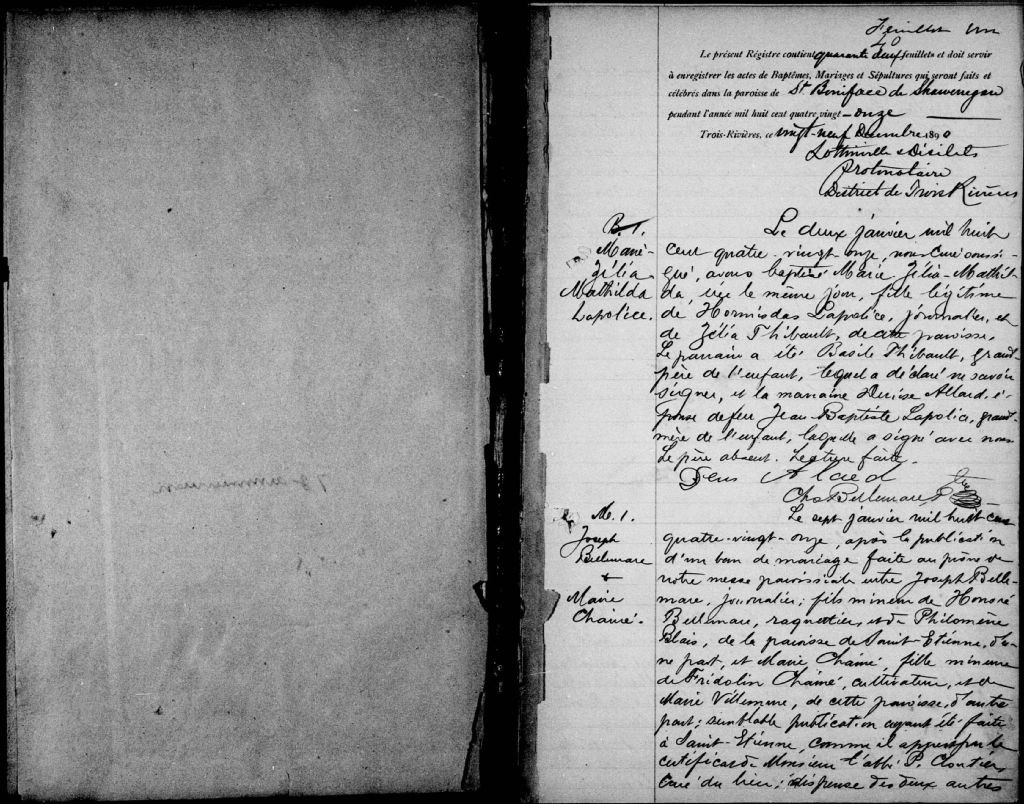 Feuillet un
40
Le présent Régistre contient quarante deux feuillets et doit servir
à enregistrer les actes de Baptêmes, Mariages et Sépultures qui seront faits et
célébrés dans la paroisse de St Boniface de Shawenegan
pendant l'année mil huit cent quatre vingt - onze
Trois-Rivières, ce vingt-neuf Décembre 1890
Lottinville & Désilets
Protonotaire
District de Trois Rivières
B. 1.
Marie-
Zélia
Mathilda
Lapolice.
Le deux janvier mil huit
cent quatre-vingt-onze, nous curé soussi-
gné, avons baptisé Marie Zélia-Mathil-
da, née le même jour, fille légitime
de Hormisdas Lapolice, journalier, et
de Zélia Thibault, de cette paroisse.
Le parrain a été Basile Thibault, grand-
père de l'enfant, lequel a déclaré ne savoir
signer, et la marraine Denise Allard, é-
pouse de feu Jean-Baptiste Lapolice, grand-
mère de l'enfant, laquelle a signé avec nous
Le père absent. Lecture faite.
Denis Alard
Chs Bellemare Ptre
M. 1.
Joseph
Bellemare
+
Marie
Chainé.
Le sept janvier mil huit cent
quatre-vingt-onze, après la publication
d'un ban de mariage faite au prône de
notre messe paroissiale entre Joseph Belle-
mare, journalier, fils mineur de Honoré
Bellemare, raquettier, et de Philomène
Blais, de la paroisse de Saint-Etienne, d'u-
ne part, et Marie Chainé, fille mineure
de Fridolin Chainé, cultivateur, et de
Marie Villemure, de cette paroisse, d'autre
part; semblable publication ayant été faite
à Saint-Etienne, comme il appert par le
certificat de Monsieur l'abbé P. Cloutier,
Curé du lieu; dispense des deux autres